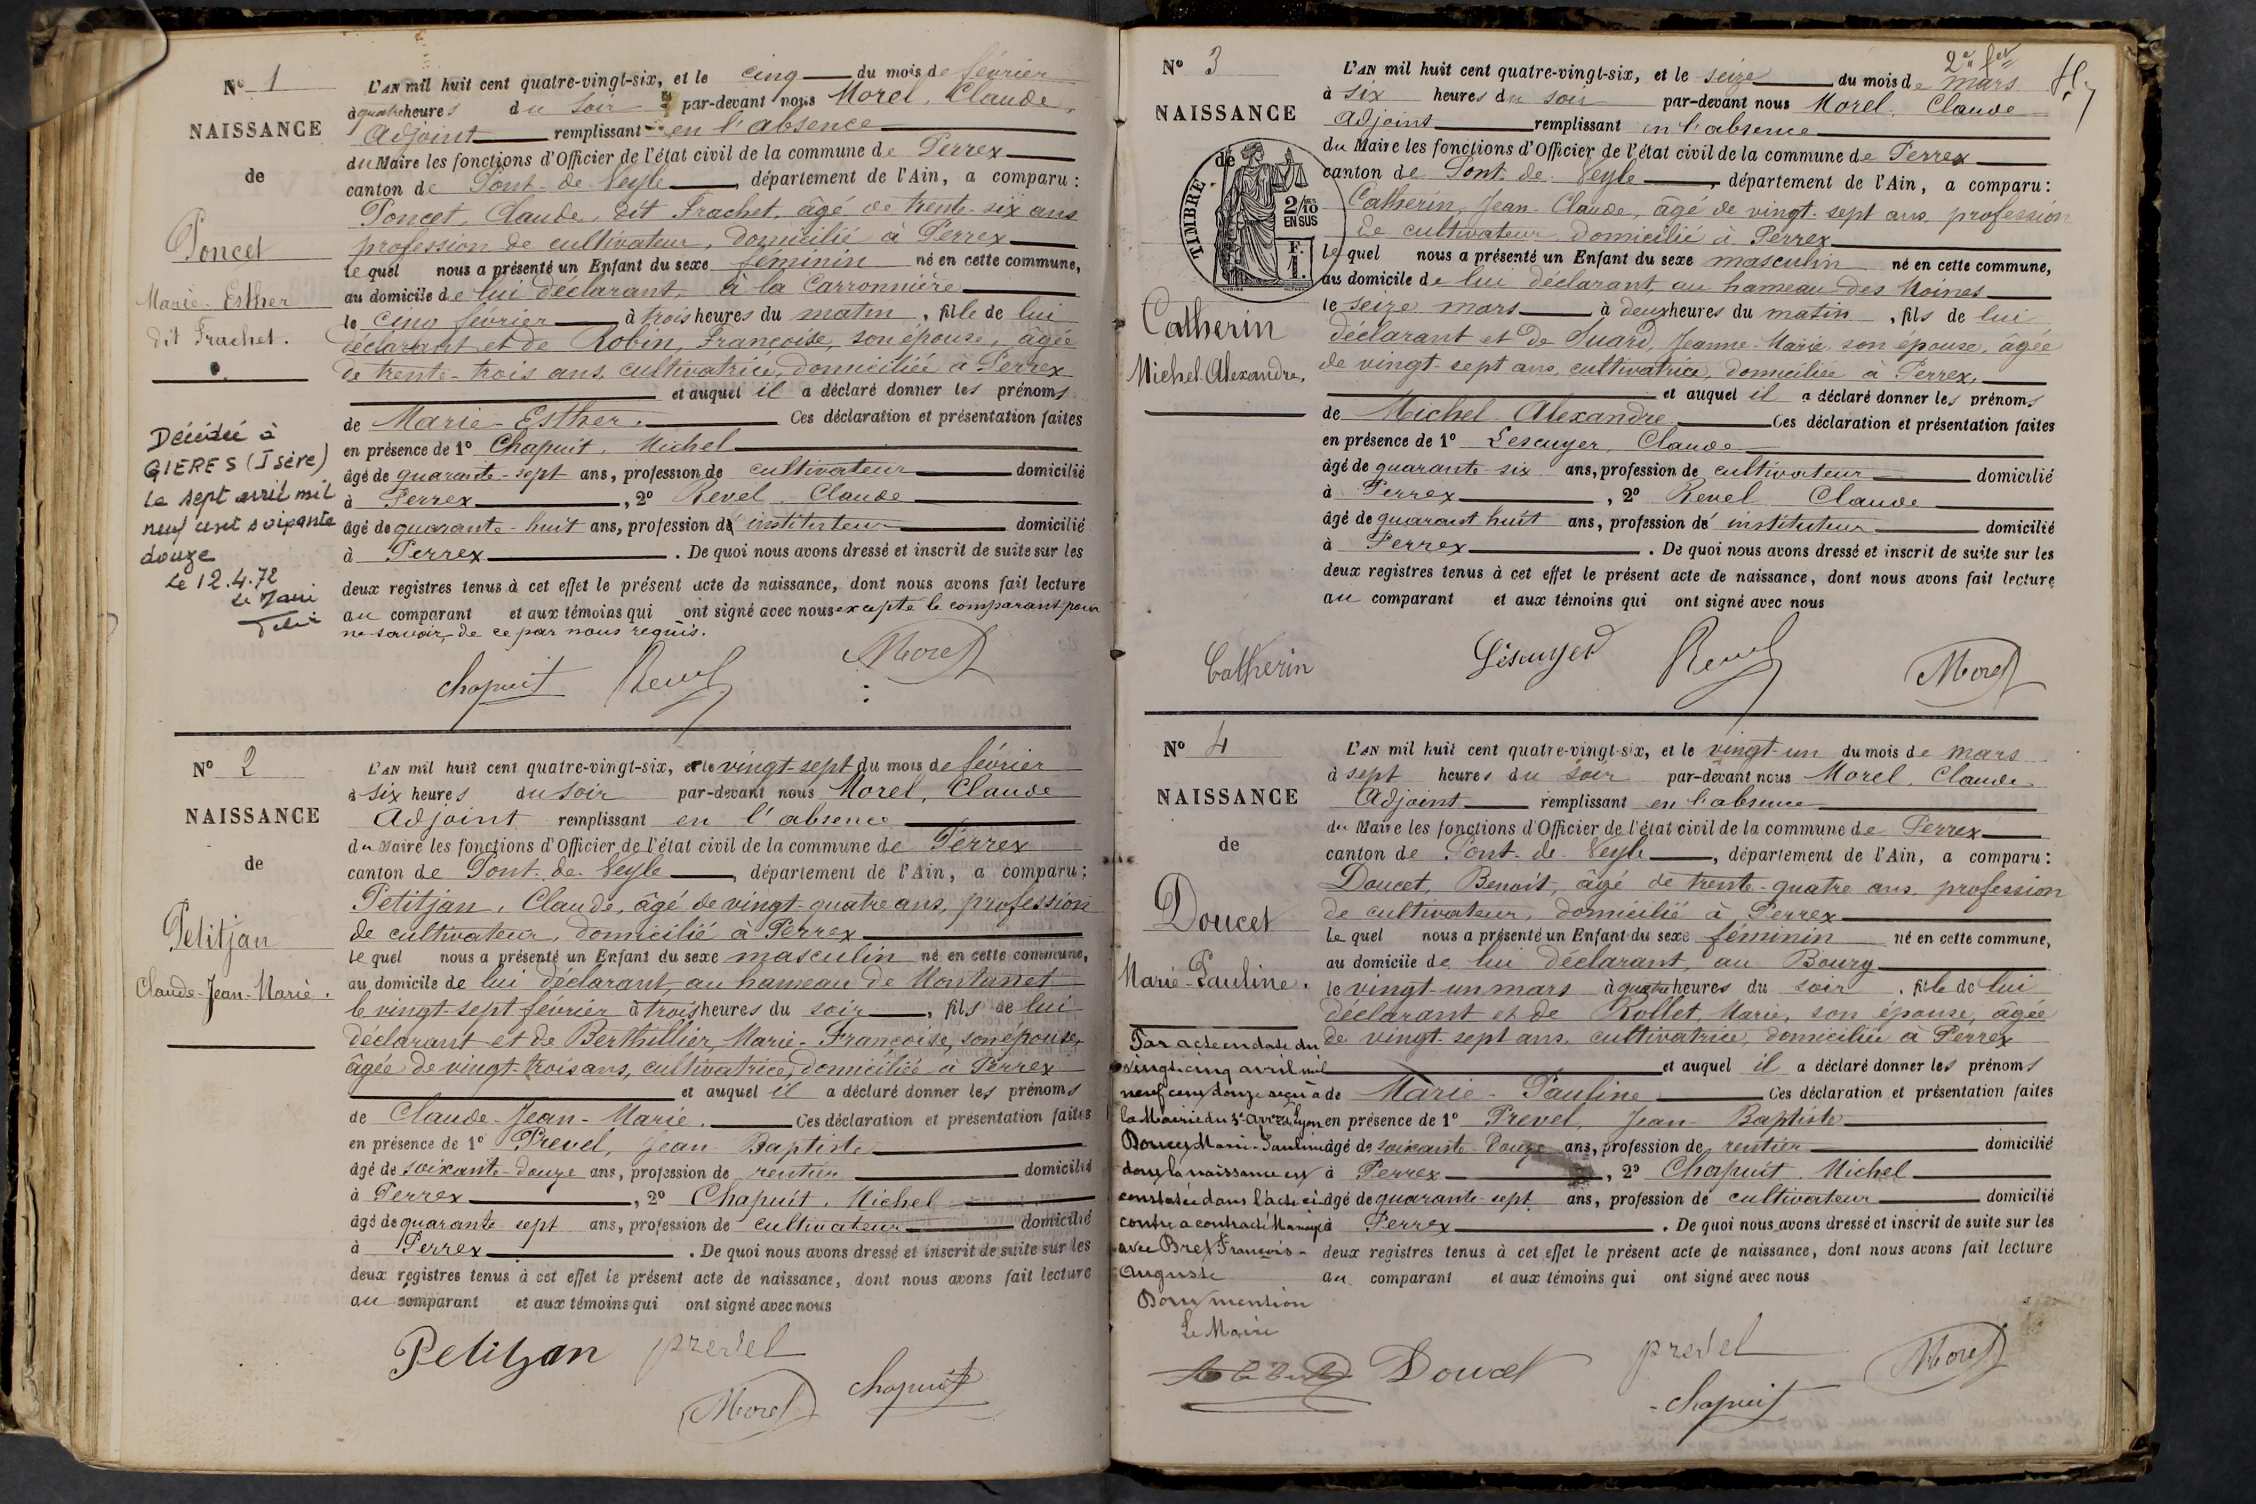 N° 1
NAISSANCE
de
Poncet
Marie-Esther
dit Frachet.
Décédée à
GIERES (Isère)
le sept avril mil
neuf cent soixante
douze
Le 12.4.72
Le Maire
L'AN mil huit cent quatre-vingt-six, et le cinq du mois de février
à quatre heures du soir par-devant nous Morel, Claude,
Adjoint remplissant en l'absence
du Maire les fonctions d'Officier de l'état civil de la commune de Perrex
canton de Pont-de-Veyle, département de l'Ain, a comparu :
Poncet, Claude, dit Frachet, âgé de trente-six ans
profession de cultivateur, domicilié à Perrex
le quel nous a présenté un Enfant du sexe féminin né en cette commune,
au domicile de lui déclarant, à la Carronnière
le cinq février à trois heures du matin, fille de lui
déclarant et de Robin, Françoise, son épouse, âgée
de trente-trois ans, cultivatrice, domiciliée à Perrex
et auquel il a déclaré donner les prénoms
de Marie-Esther. Ces déclaration et présentation faites
en présence de 1° Chapuit, Michel
âgé de quarante-sept ans, profession de cultivateur domicilié
à Perrex, 2° Revel, Claude
âgé de quarante-huit ans, profession d' instituteur domicilié
à Perrex. De quoi nous avons dressé et inscrit de suite sur les
deux registres tenus à cet effet le présent acte de naissance, dont nous avons fait lecture
au comparant et aux témoins qui ont signé avec nous excepté le comparant pour
ne savoir, de ce par nous requis.
Chapuit Revel Morel
N° 2
NAISSANCE
de
Petitjan
Claude-Jean-Marie.
L'AN mil huit cent quatre-vingt-six, et le vingt-sept du mois de février
à six heures du soir par-devant nous Morel, Claude
Adjoint remplissant en l'absence
du Maire les fonctions d'Officier de l'état civil de la commune de Perrex
canton de Pont-de-Veyle, département de l'Ain, a comparu :
Petitjan, Claude, âgé de vingt-quatre ans, profession
de cultivateur, domicilié à Perrex
le quel nous a présenté un Enfant du sexe masculin né en cette commune,
au domicile de lui déclarant, au hameau de Montanet
le vingt-sept février à trois heures du soir, fils de lui
déclarant et de Berthillier, Marie-Françoise, son épouse,
âgée de vingt-trois ans, cultivatrice, domiciliée à Perrex
et auquel il a déclaré donner les prénoms
de Claude-Jean-Marie. Ces déclaration et présentation faites
en présence de 1° Prevel, Jean-Baptiste
âgé de soixante-douze ans, profession de rentier domicilié
à Perrex, 2° Chapuit, Michel
âgé de quarante sept ans, profession de cultivateur domicilié
à Perrex. De quoi nous avons dressé et inscrit de suite sur les
deux registres tenus à cet effet le présent acte de naissance, dont nous avons fait lecture
au comparant et aux témoins qui ont signé avec nous
Petitjan prevel
Morel Chapuit
N° 3
NAISSANCE
de
TIMBRE
2/10 EN SUS
F. 1.
Catherin
Michel Alexandre.
2e fet
L'AN mil huit cent quatre-vingt-six, et le seize du mois de mars
à six heures du soir par-devant nous Morel, Claude
Adjoint remplissant en l'absence
du Maire les fonctions d'Officier de l'état civil de la commune de Perrex
canton de Pont-de-Veyle, département de l'Ain, a comparu :
Catherin, Jean-Claude, âgé de vingt-sept ans, profession
de cultivateur domicilié à Perrex
le quel nous a présenté un Enfant du sexe masculin né en cette commune,
au domicile de lui déclarant, au hameau des Moines
le seize mars à deux heures du matin, fils de lui
déclarant et de Suard, Jeanne-Marie, son épouse, âgée
de vingt-sept ans, cultivatrice, domiciliée à Perrex,
et auquel il a déclaré donner les prénoms
de Michel-Alexandre Ces déclaration et présentation faites
en présence de 1° Lescuyer, Claude
âgé de quarante-six ans, profession de cultivateur domicilié
à Perrex, 2° Revel Claude
âgé de quarant huit ans, profession d' instituteur domicilié
à Perrex. De quoi nous avons dressé et inscrit de suite sur les
deux registres tenus à cet effet le présent acte de naissance, dont nous avons fait lecture
au comparant et aux témoins qui ont signé avec nous
Catherin Léscuyer Revel Morel
N° 4
NAISSANCE
de
Doucet
Marie-Pauline.
Par acte en date du
vingt-cinq avril mil
neuf cent douze reçu à
la Mairie du 3e Arrt de Lyon
Doucet Marie-Pauline
dont la naissance est
constatée dans l'acte ci-
contre a contracté Mariage
avec Bret François-
Auguste
Dont mention
Le Maire
L'AN mil huit cent quatre-vingt-six, et le vingt-un du mois de mars
à sept heures du soir par-devant nous Morel, Claude
Adjoint remplissant en l'absence
du Maire les fonctions d'Officier de l'état civil de la commune de Perrex
canton de Pont-de-Veyle, département de l'Ain, a comparu :
Doucet, Benoît, âgé de trente-quatre ans, profession
de cultivateur, domicilié à Perrex
le quel nous a présenté un Enfant du sexe féminin né en cette commune,
au domicile de lui déclarant, au Bourg
le vingt-un mars à quatre heures du soir, fille de lui
déclarant et de Rollet, Marie, son épouse, âgée
de vingt-sept ans, cultivatrice, domiciliée à Perrex
et auquel il a déclaré donner les prénoms
de Marie-Pauline Ces déclaration et présentation faites
en présence de 1° Prevel, Jean-Baptiste
âgé de soixante-douze ans, profession de rentier domicilié
à Perrex, 2° Chapuit, Michel
âgé de quarante-sept ans, profession de cultivateur domicilié
à Perrex. De quoi nous avons dressé et inscrit de suite sur les
deux registres tenus à cet effet le présent acte de naissance, dont nous avons fait lecture
au comparant et aux témoins qui ont signé avec nous
Doucet prevel Morel
Chapuit